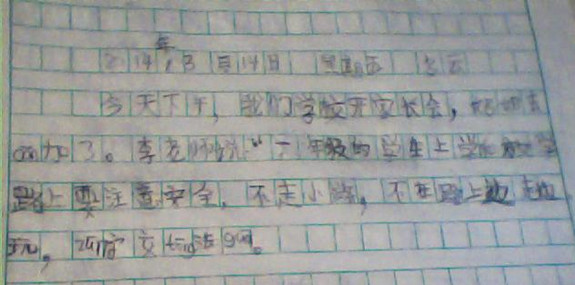 2014年3月14日 星期五 多云
今天下午，我们学校开家长会，妈妈去
参加了。李老师说：“一年级的学生上学和放学
路上要注意安全，不走小路，不在路上边走边
玩，遵守交